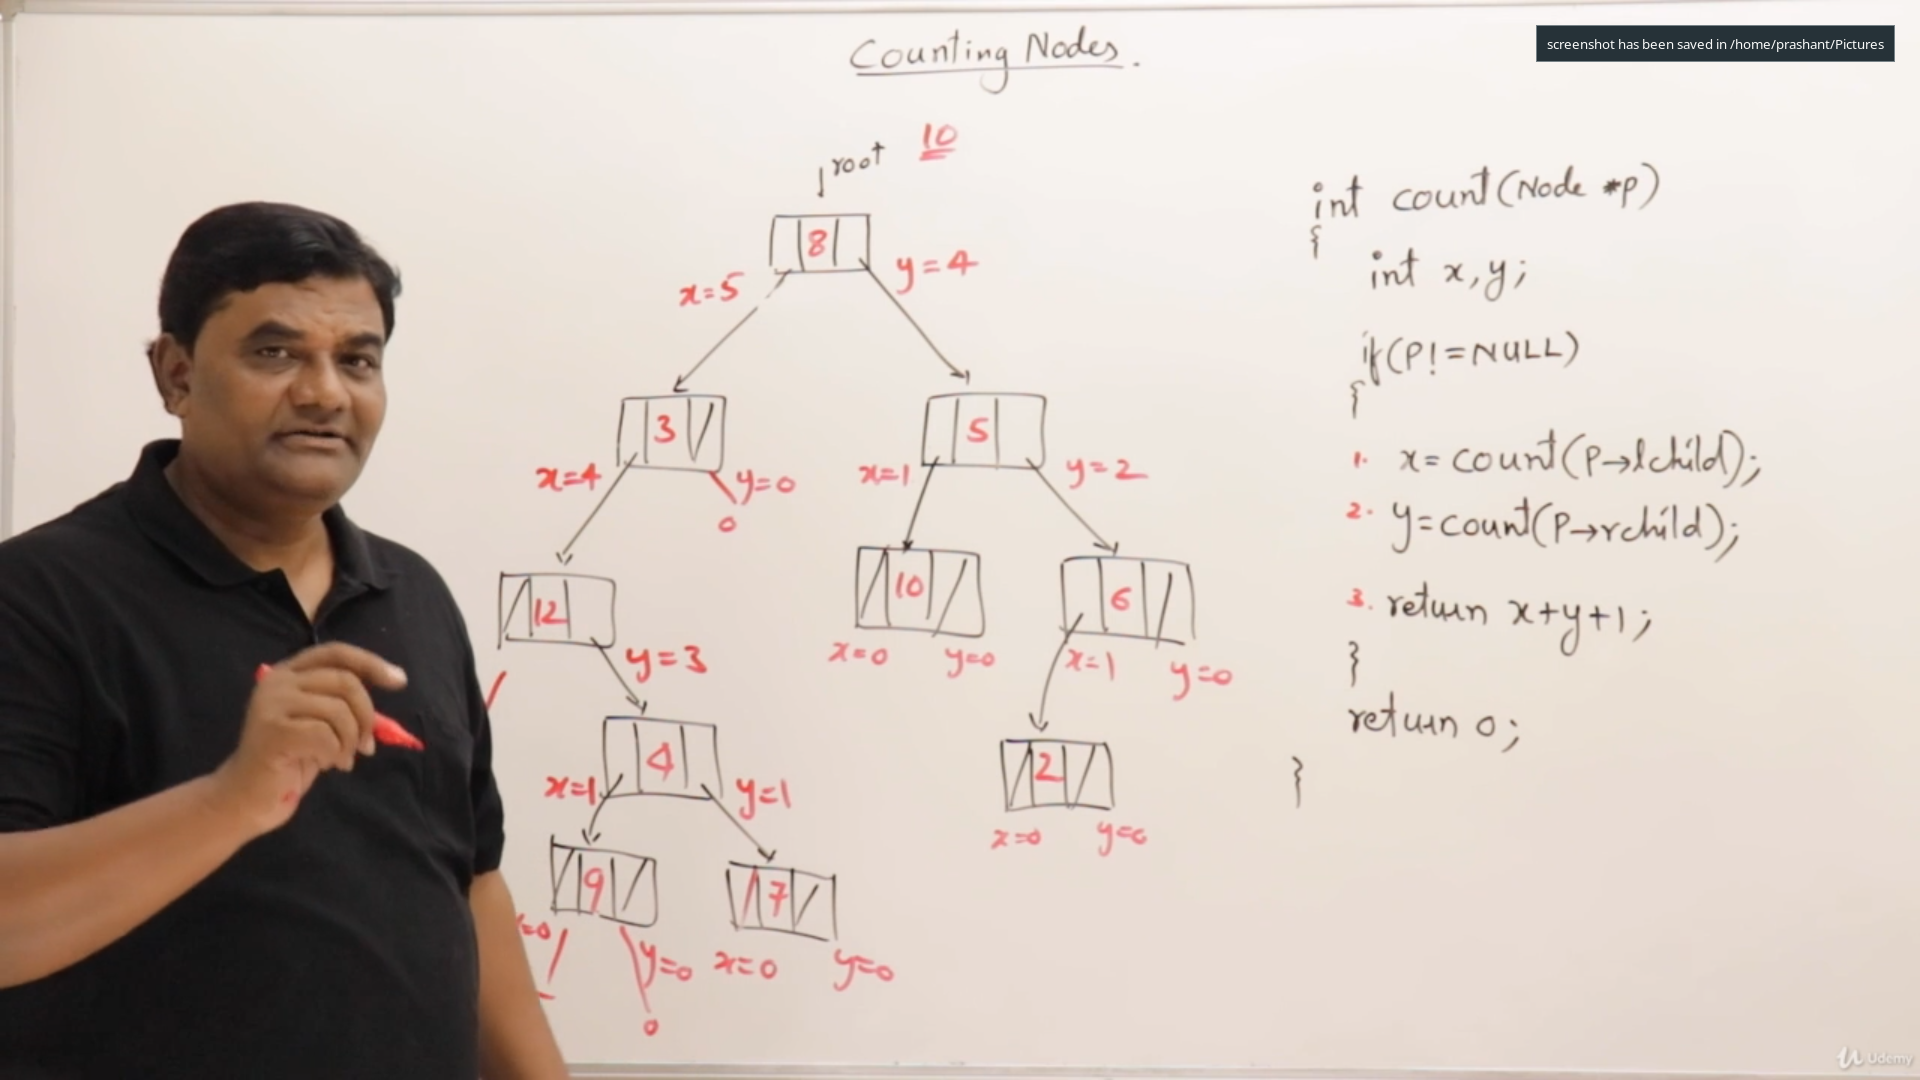 Counting Nodes.
screenshot has been saved in /home/prashant/Pictures
root 10
8
x=5 y=4
3 5
x=4 y=0 x=1 y=2
0
12 10 6
y=3 x=0 y=0 x=1 y=0
4 2
x=1 y=1 x=0 y=0
9 7
=0 y=0 x=0 y=0
0
int count(Node *p)
{
int x,y;
if(P!=NULL)
{
1. x= count(P→lchild);
2. y=count(P→rchild);
3. return x+y+1;
}
return 0;
}
Udemy